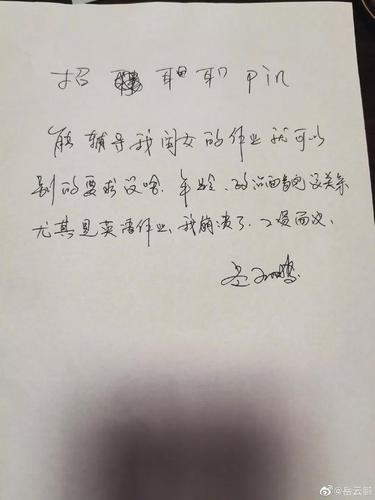 招 耳 职 pin
能辅导我闺女的作业就可以
别的要求没啥.年龄.政治面貌没关系
尤其是英语作业,我崩溃了.工资面议.
岳云鹏
@岳云鹏